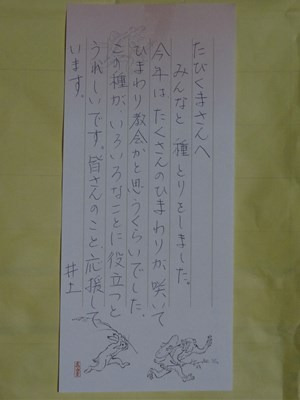 たびくまさんへ
みんなと種とりをしました。
今年は、たくさんのひまわりが、咲いて
ひまわり教会かと思うくらいでした。
この種が、いろいろなことに役立つと
うれしいです。皆さんのこと、応援して
います。
井上